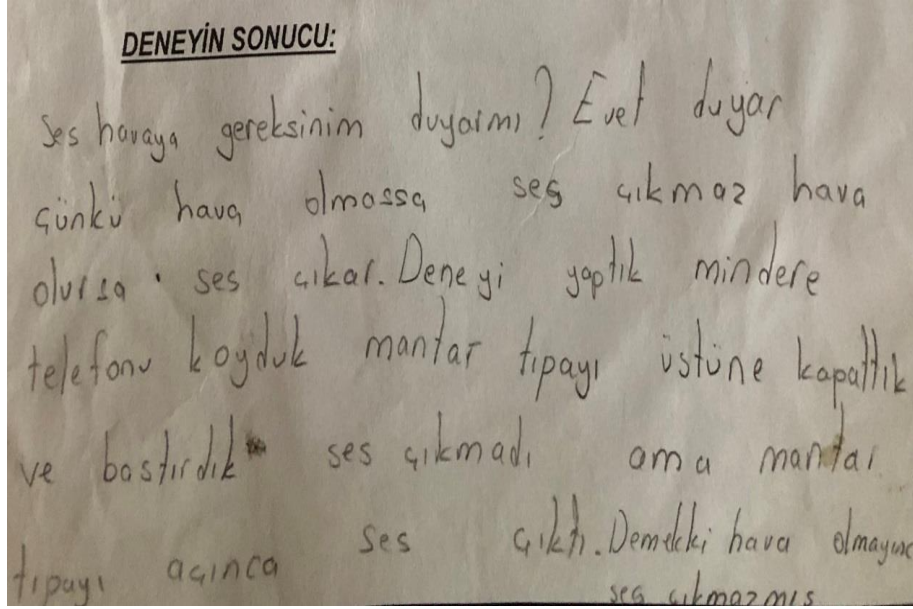 DENEYİN SONUCU:
Ses havaya gereksinim duyarmı? Evet duyar
çünkü hava olmassa ses çıkmaz hava
olursa ses çıkar. Deneyi yaptık mindere
telefonu koyduk mantar tıpayı üstüne kapattık
ve bastırdık ses çıkmadı ama mantar
tıpayı açınca ses çıktı. Demekki hava olmayınc
ses çıkmazmış